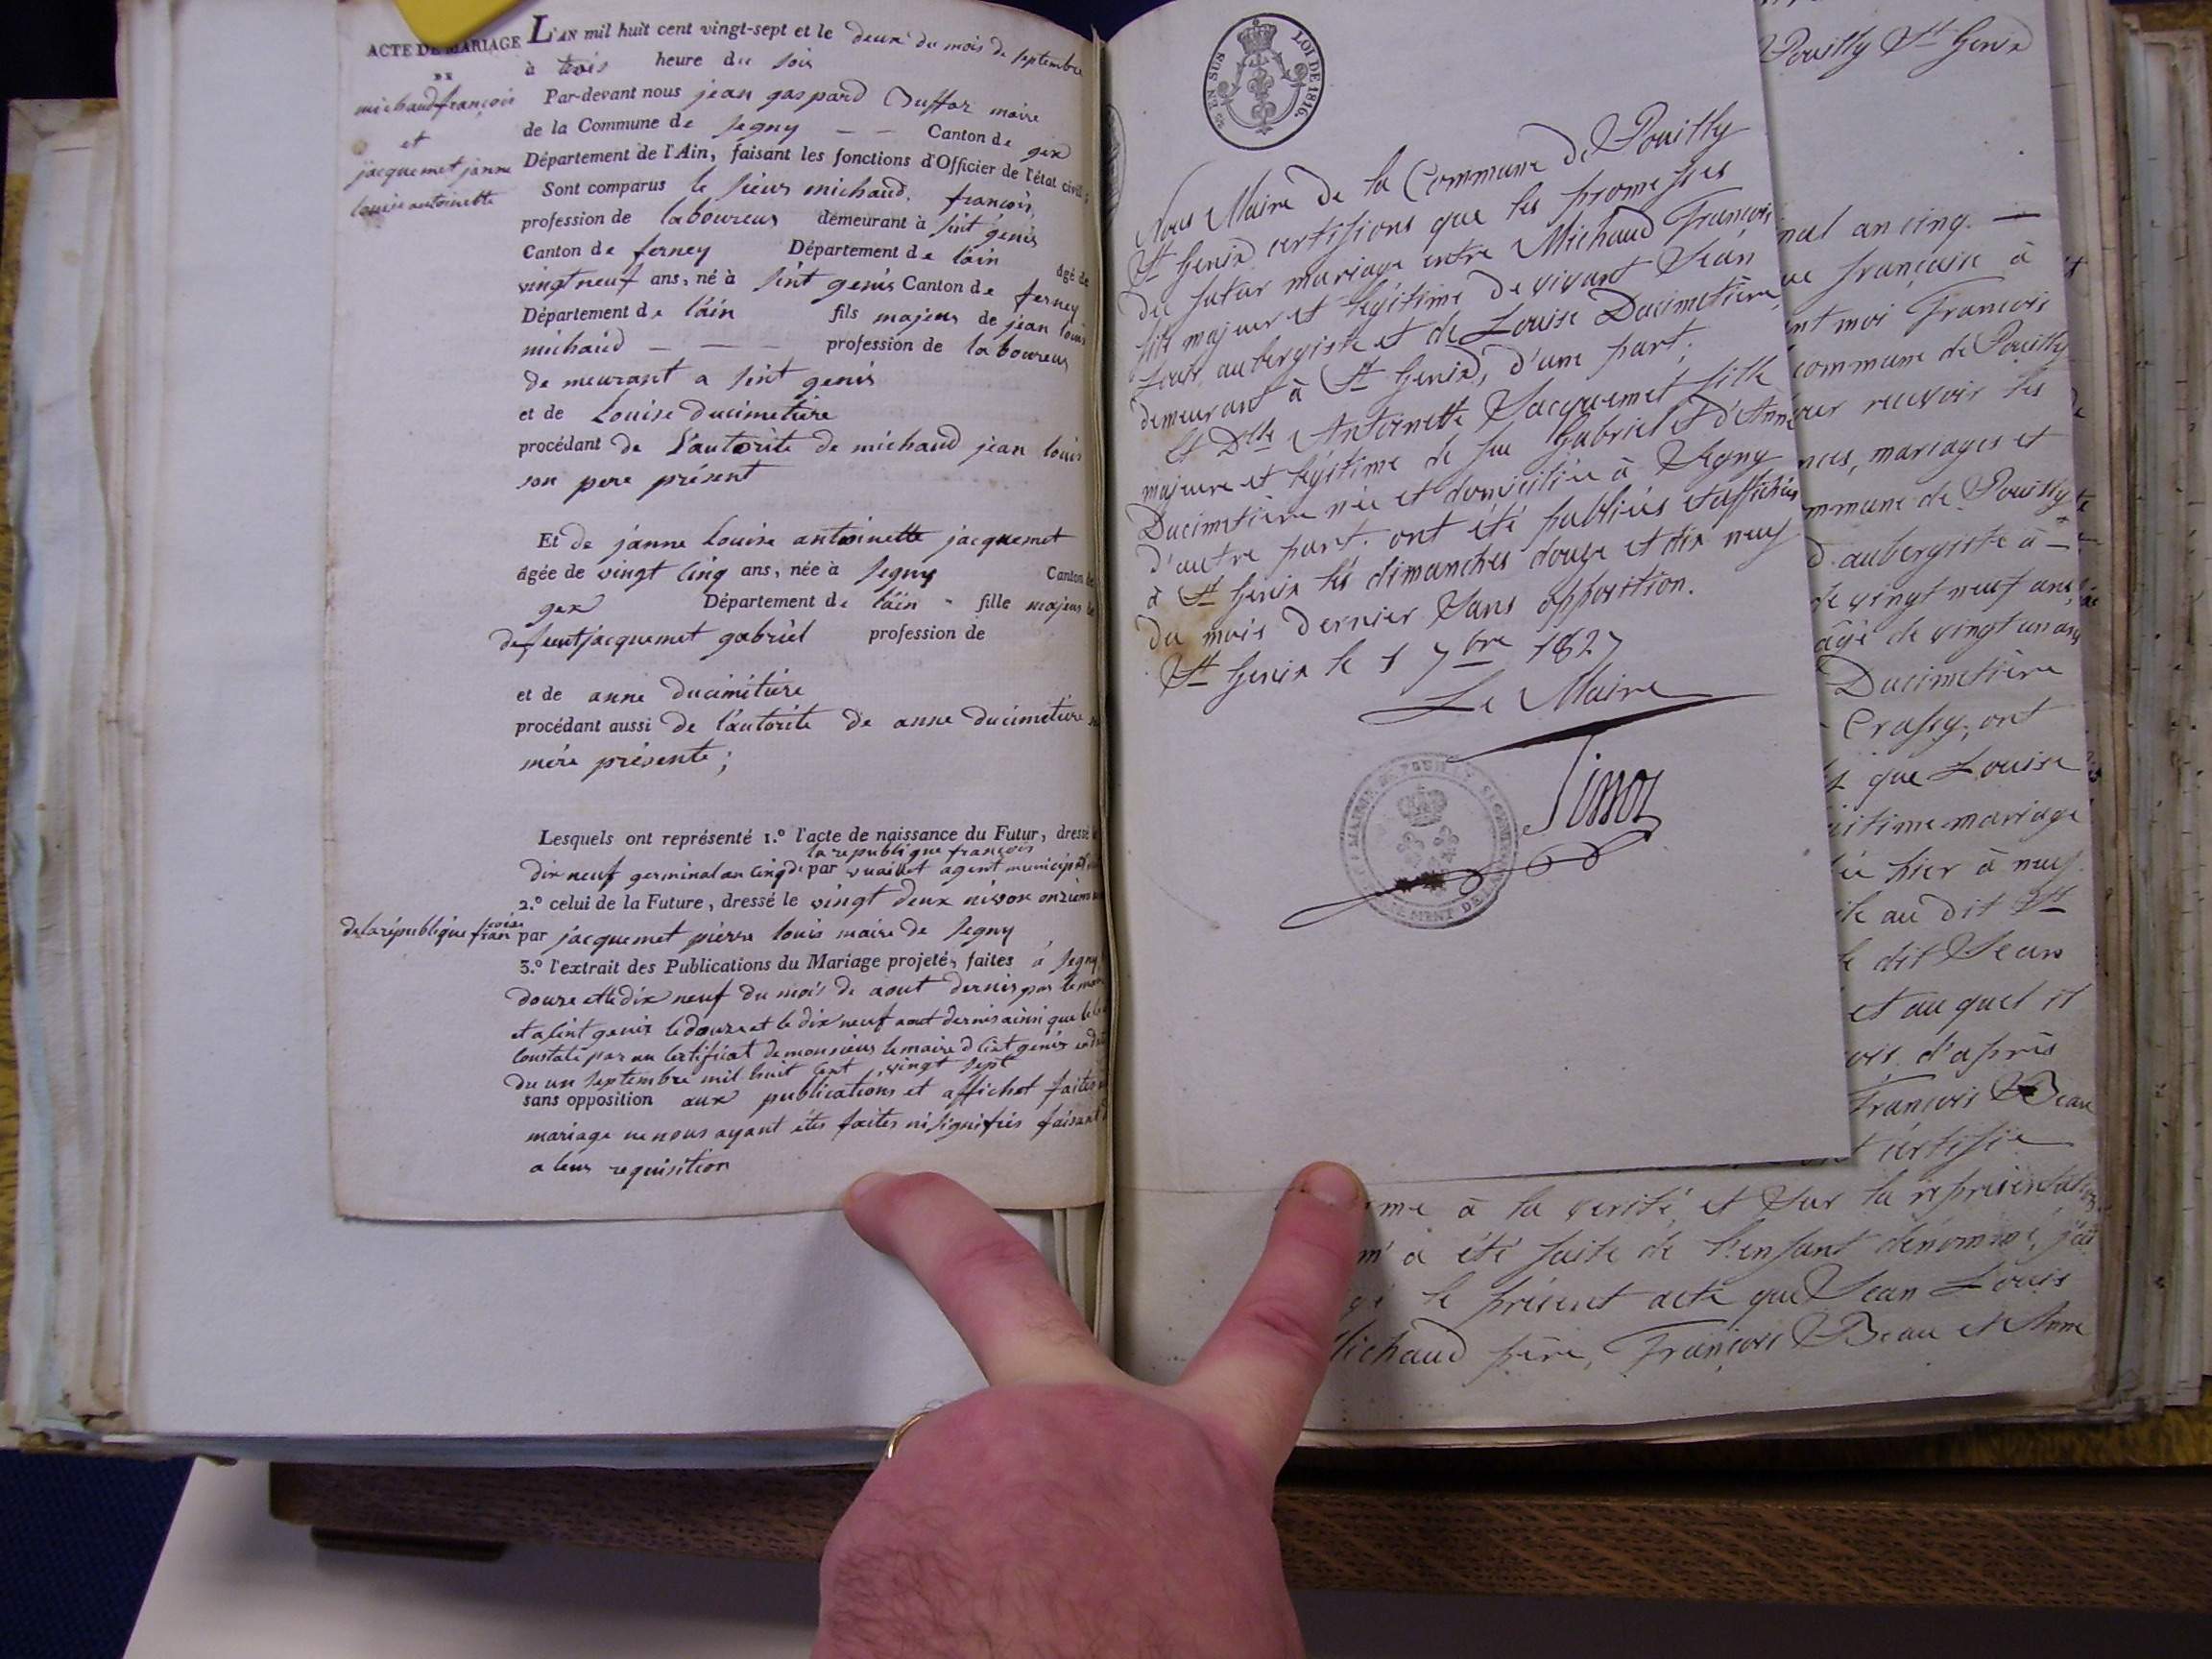 ACTE DE MARIAGE
DE
michaud françois
et
jacquemet janne
louise antoinette
L'AN mil huit cent vingt-sept et le deux du mois de septembre
à trois heure du soir
Par-devant nous jean gaspard maire
de la Commune de segny — — Canton de gex
Département de l'Ain, faisant les fonctions d'Officier de l'état civil
Sont comparus le sieur michaud françois,
profession de laboureur demeurant à sint genis
Canton de ferney Département de l'ain âgé de
vingt neuf ans, né à sint genis Canton de ferney
Département de l'ain fils majeur de jean louis
michaud — — — profession de laboureur
de meurant a sint genis
et de Louise ducimetiere
procédant de l'autorité de michaud jean louis
son pere présent
Et de janne Louise antoinette jacquemet
âgée de vingt cinq ans, née à segny Canton
gex Département de l'ain - fille majeur
defeunt jacquemet gabriel profession de
et de anne ducimetiere
procédant aussi de l'autorité de anne ducimetiere
mére présente;
Lesquels ont représenté 1.º l'acte de naissance du Futur, dressé
la republique francois
dix neuf germinal an cinq de par agent municipal
2.º celui de la Future, dressé le vingt deux nivose onzieme
de la république françoise par jacquemet pierre louis maire de segny
3.º l'extrait des Publications du Mariage projeté, faites à segny
douze et le dix neuf du mois de aout dernier par le maire
et a sint genix le douze et le dix neuf aout dernier ainsi que le
constate par un certificat de monsieur le maire genis
du un septembre mil huit cent vingt sept
sans opposition aux publications et affichet faites
mariage ne nous ayant étés faites ni signifiés faisant
a leur requisition
EN SUS LOI DE 1816.
Nous Maire de la Commune de Pouilly
St Genix certifions que les promesses
du futur mariage entre Michaud François
fils majeur et légitime de vivant Jean
Louis aubergiste et de Louise Ducimetière
demeurant à St Genix, d'une part;
Et Dlle Antoinette Jacquemet fille
majeure et légitime de feu Gabriel et d'Anne
Ducimetière née et domiciliée à Segny
d'autre part; ont été publiées et affichées
à St Genix les dimanches douze et dix neuf
du mois dernier sans opposition.
St Genix le 1 7bre 1827
Le Maire
Pouilly St Genix
nal an cinq. —
française à
nt moi François
commune de Pouilly
recevoir les
mariages et
mmune de Pouilly
aubergiste à —
de vingt neuf ans,
âgé de vingt un ans
Ducimetière
Crassy, ont
que Louise
mariage
hier à neuf
au dit St
le dit Jean
et au quel il
d'après
François Beau
certifie
me à la verité, et sur la représentation
m'a été faite de l'enfant dénommé, j'ai
le présent acte que Jean Louis
Michaud père, François Beau et Anne